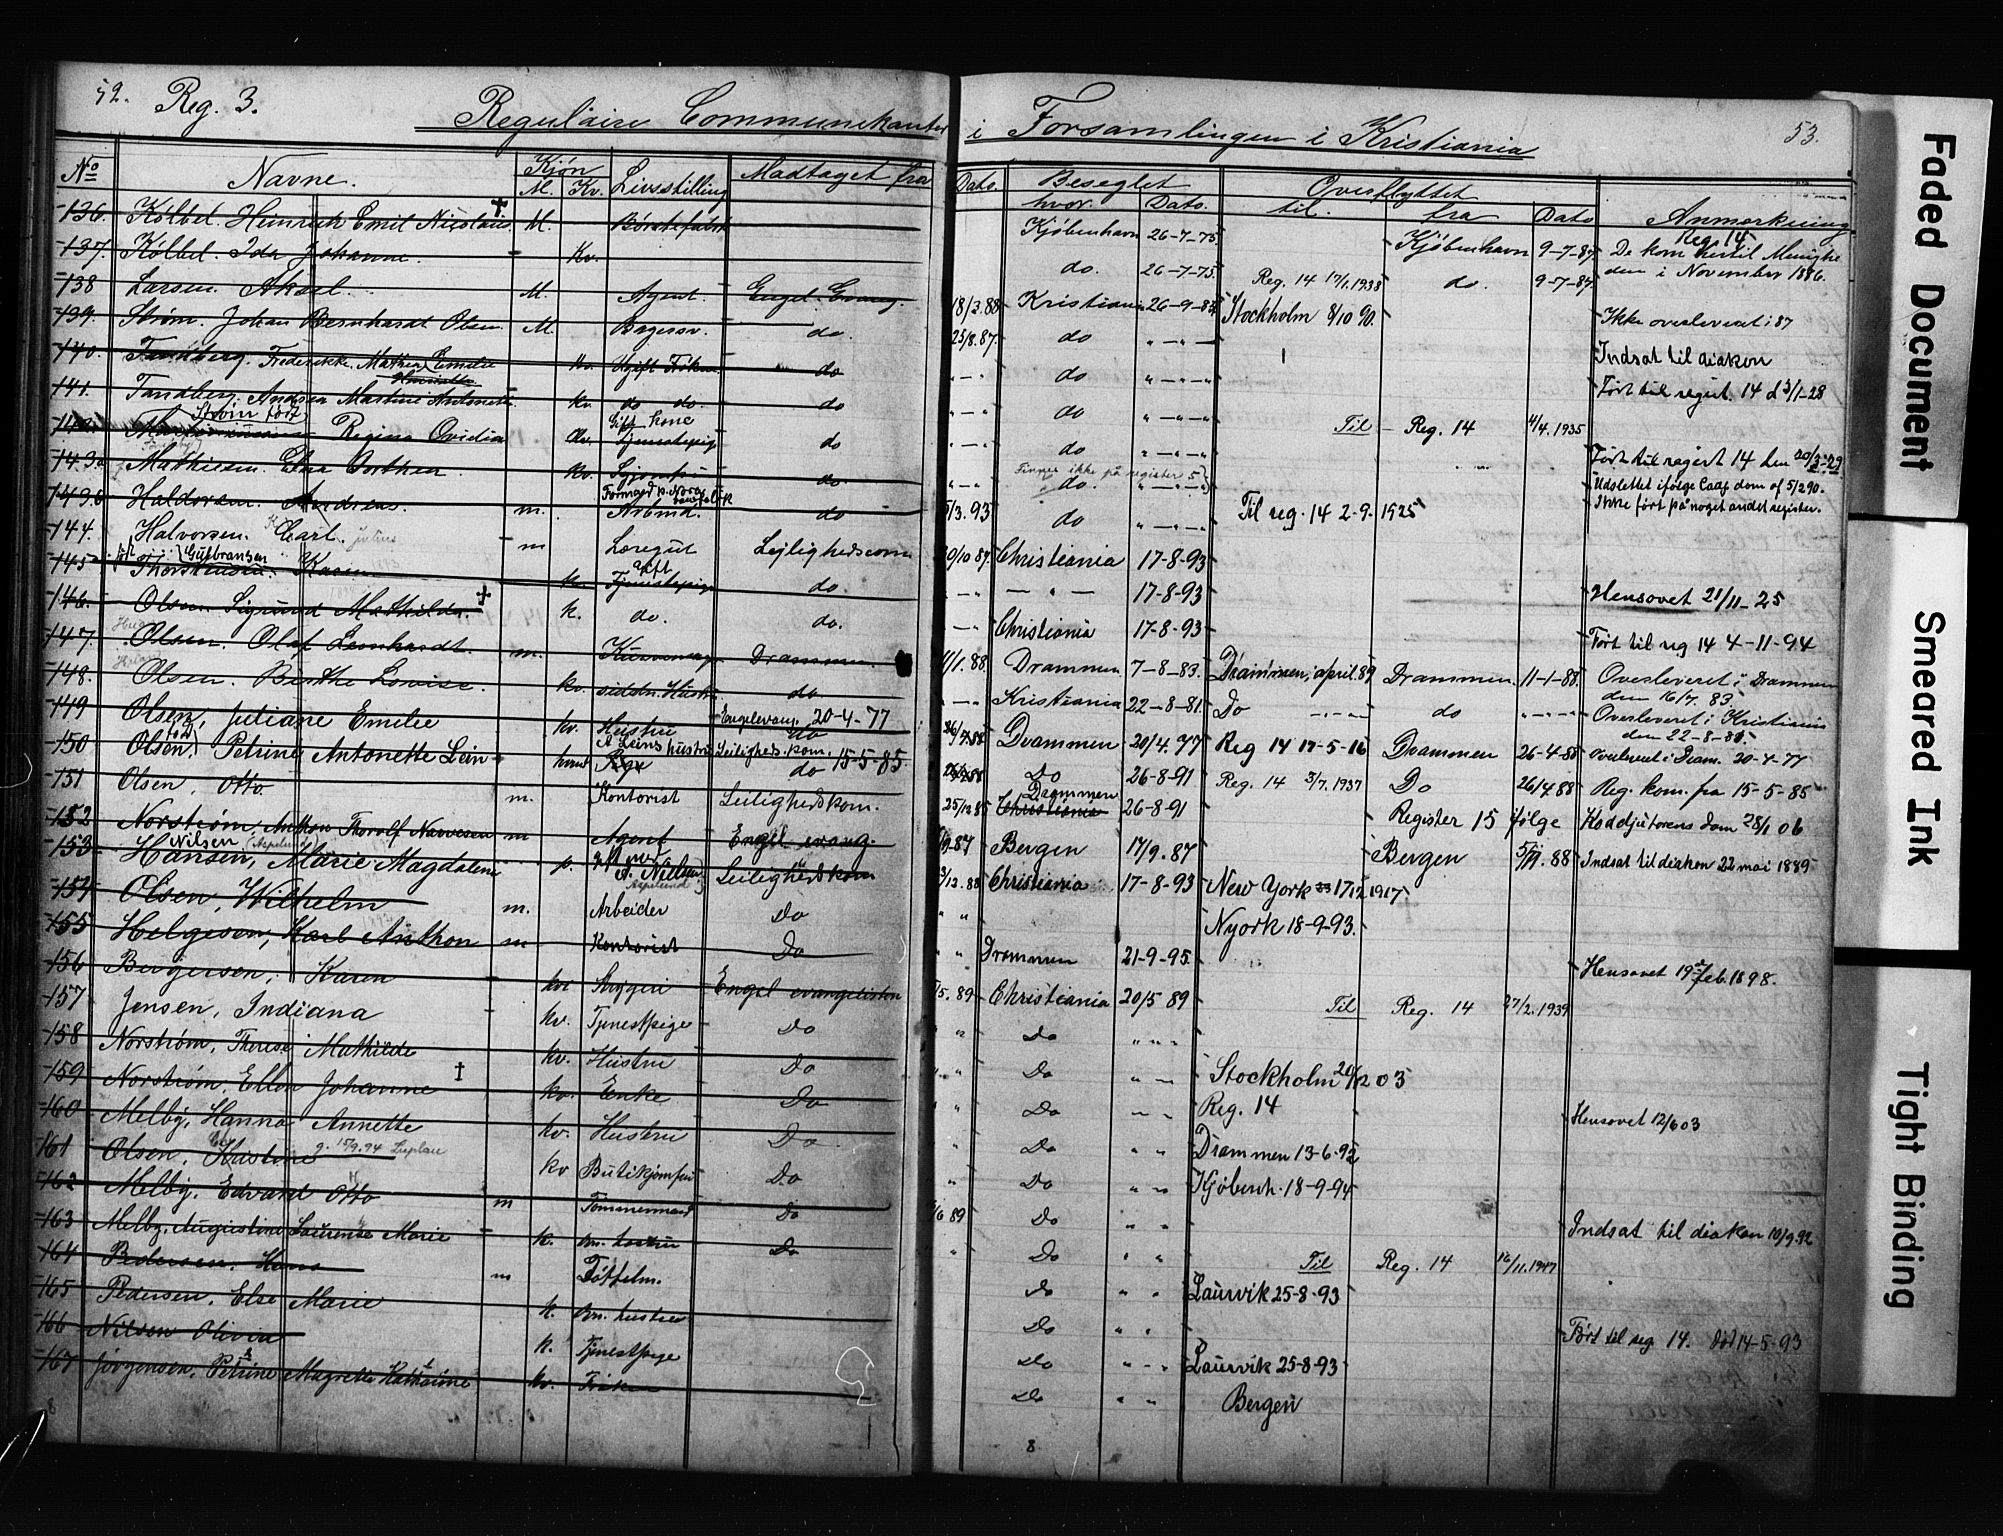 52. Reg. 3. Regulaire Communikanter
i Forsamlingen i Kristiania 53.
No Navne. Kjøn Livsstilling Modtaget fra
M. Kv.
Dato. Beseglet Overflyttet Anmerkning
hvor. Dato. til. fra Dato
136. Kölbel. Heinrich Emil Nicolaus † M. Børstefabr. Kjøbenhavn 26-7-75 Kjøbenhavn 9-7-87 De kom hertil Menighe
Reg. 14
137. Kölbel. Ida Johanne. Kv. do. 26-7-75. Reg. 14 17/1.1938 do. 9-7-87 den i November 1886.
138 Larsen. Aksel. M. Agent. Engel. Evang. 18/3.88 Kristiania 26-9-87 Stockholm 8/10 90. Ikke overleveret i 87
139. Strøm. Johan Bernhardt Olsen M. Bagersv. do. 25/8.87. do " — " — Indsat til diakon
140. Tandberg. Frederikke Mathea Emilie Kv. Ugift Frøken do " — " do " — " — " Ført til regist. 14 d 3/1-28
Henriette
141. Tandberg. Andrea Martine Antonette Kv. do do. do " — " do " — " — " Til Reg. 14 4/4.1935
Strøm født
142. Regina Ovidia Kv. Gift kone Tjenestepig do " — " do " — " — " Ført til regist 14 den 20/3-29
143a Mathiesen. Elna Dorthea Kv. do. " — " do. " — " — " Udslettet ifølge Caap dom af 5/2 90.
Finnes ikke på register 5
Ikke ført på noget andet register.
143b Haldorsen. Andreas. m. Formand v. Norsk Arbmd. do 3.93 do " — " — " Til reg. 14 2-9-1925
144. Halvorsen. Carl. Julius m Læregut Lejlighedscom 30/10 87. Christiania 17-8-93
født Gulbransen
145 Thorstensen. Karen k. gift Tjenestepige do. " — " 17-8-93 Hensovet 21/11-25
146. Olsen. Sigrund Mathilde. † k. do. do. — " Christiania 17-8-93 Ført til reg 14 4-11-94
147. Olsen. Olaf Leonhardt. m. Drammen. 11/1.88 Drammen 7-8-83. Drammen, april. 89 Drammen. 11-1-88. Overleveret i Drammen
den 16/7. 83.
148. Olsen. Birthe Lovise. kv. sidstn. Hustr. do — " — Kristiania 22-8-81. Do " — " do " — " Overleveret i Kristiania
den 22-8-81.
149 Olsen, Juliane Emilie kv. Hustru Engelevang. 20-4-77 do 26/4 88 Drammen 20/4. 77 Reg 14 17-5-16 Drammen 26-4-88 Overleveret i Dram. 20-4-77
150 Olsen, Petrine Antonette Lein kvind A Leins hustru Leilighed. kom. do 15-5-85 Do 26-8-91 Reg. 14 3/7. 1937 Do 26/4 88 Reg. kom. fra 15-5-85
151 Olsen, Otto m. Kontorist Leilighedskom. 25/12 85 Drammen Christiania 26-8-91 Register 15 følge Koadjutorens dom 28/1 06
152 Norstrøm, Anthon Thorolf Navvesen m Agent Engel evang. 9-87 Bergen 17/9. 87 Bergen 88 Indsat til diakon 22 mai 1889
Nilsen (Aspelund)
153 Hansen, Marie Magdalene A. Nielsen Aspelund Leilighedskom 3/12. 88 Christiania 17-8-93 New York 17/12 1917.
154 Olsen, Wilhelm m. Arbeider Do " " Nyork 18-9-93.
155 Helgesen, Karl Anthon m Kontorist Do " " Drammen 21-9-95. Hensovet 19 feb. 1898.
156 Bergersen, Karen kv. Engel evangelisten 5. 89 Christiania 20/5 89 Til Reg. 14 27/2.1939
157 Jensen, Indiana kv. Tjenestpige Do " Do " " "
158 Norstrøm, Therese Mathilde kv. Hustru Do " " Do " " Stockholm 20/12 03
159 Norstrøm, Ellen Johanne † kv. Enke Do " " Do " " Reg. 14 Hensovet 12/6 03
160 Melby, Hanna Annette kv. Hustru Do " Do " " Drammen 13-6-92
161 Olsen, Kristine g. 15/9.94 Luplau kv Butikjomfru Do " Do " " Kjøbenh. 18-9-94
162 Melby, Edvard Otto m Tømmermand Do 6 89 Do " " Indsat til diakon 10/9.92
163 Melby, Augustine Laurense Marie k. Bn. hustru Do " Do " " Til Reg. 14 16/11.1947
164 Pedersen. Hans m Do " " Laurvik 25-8-93
165 Pedersen, Else Marie k. Bn. hustru Do " " Ført til reg 14. død 14-5-93
166 Nilsen Olivia k. Tjenestpige Do " " Laurvik 25-8-93
167 Jörgensen, Petrine Magrette Kathrine kv. Frøken Do " " Bergen
8
8
Faded Document
Smeared Ink
Tight Binding